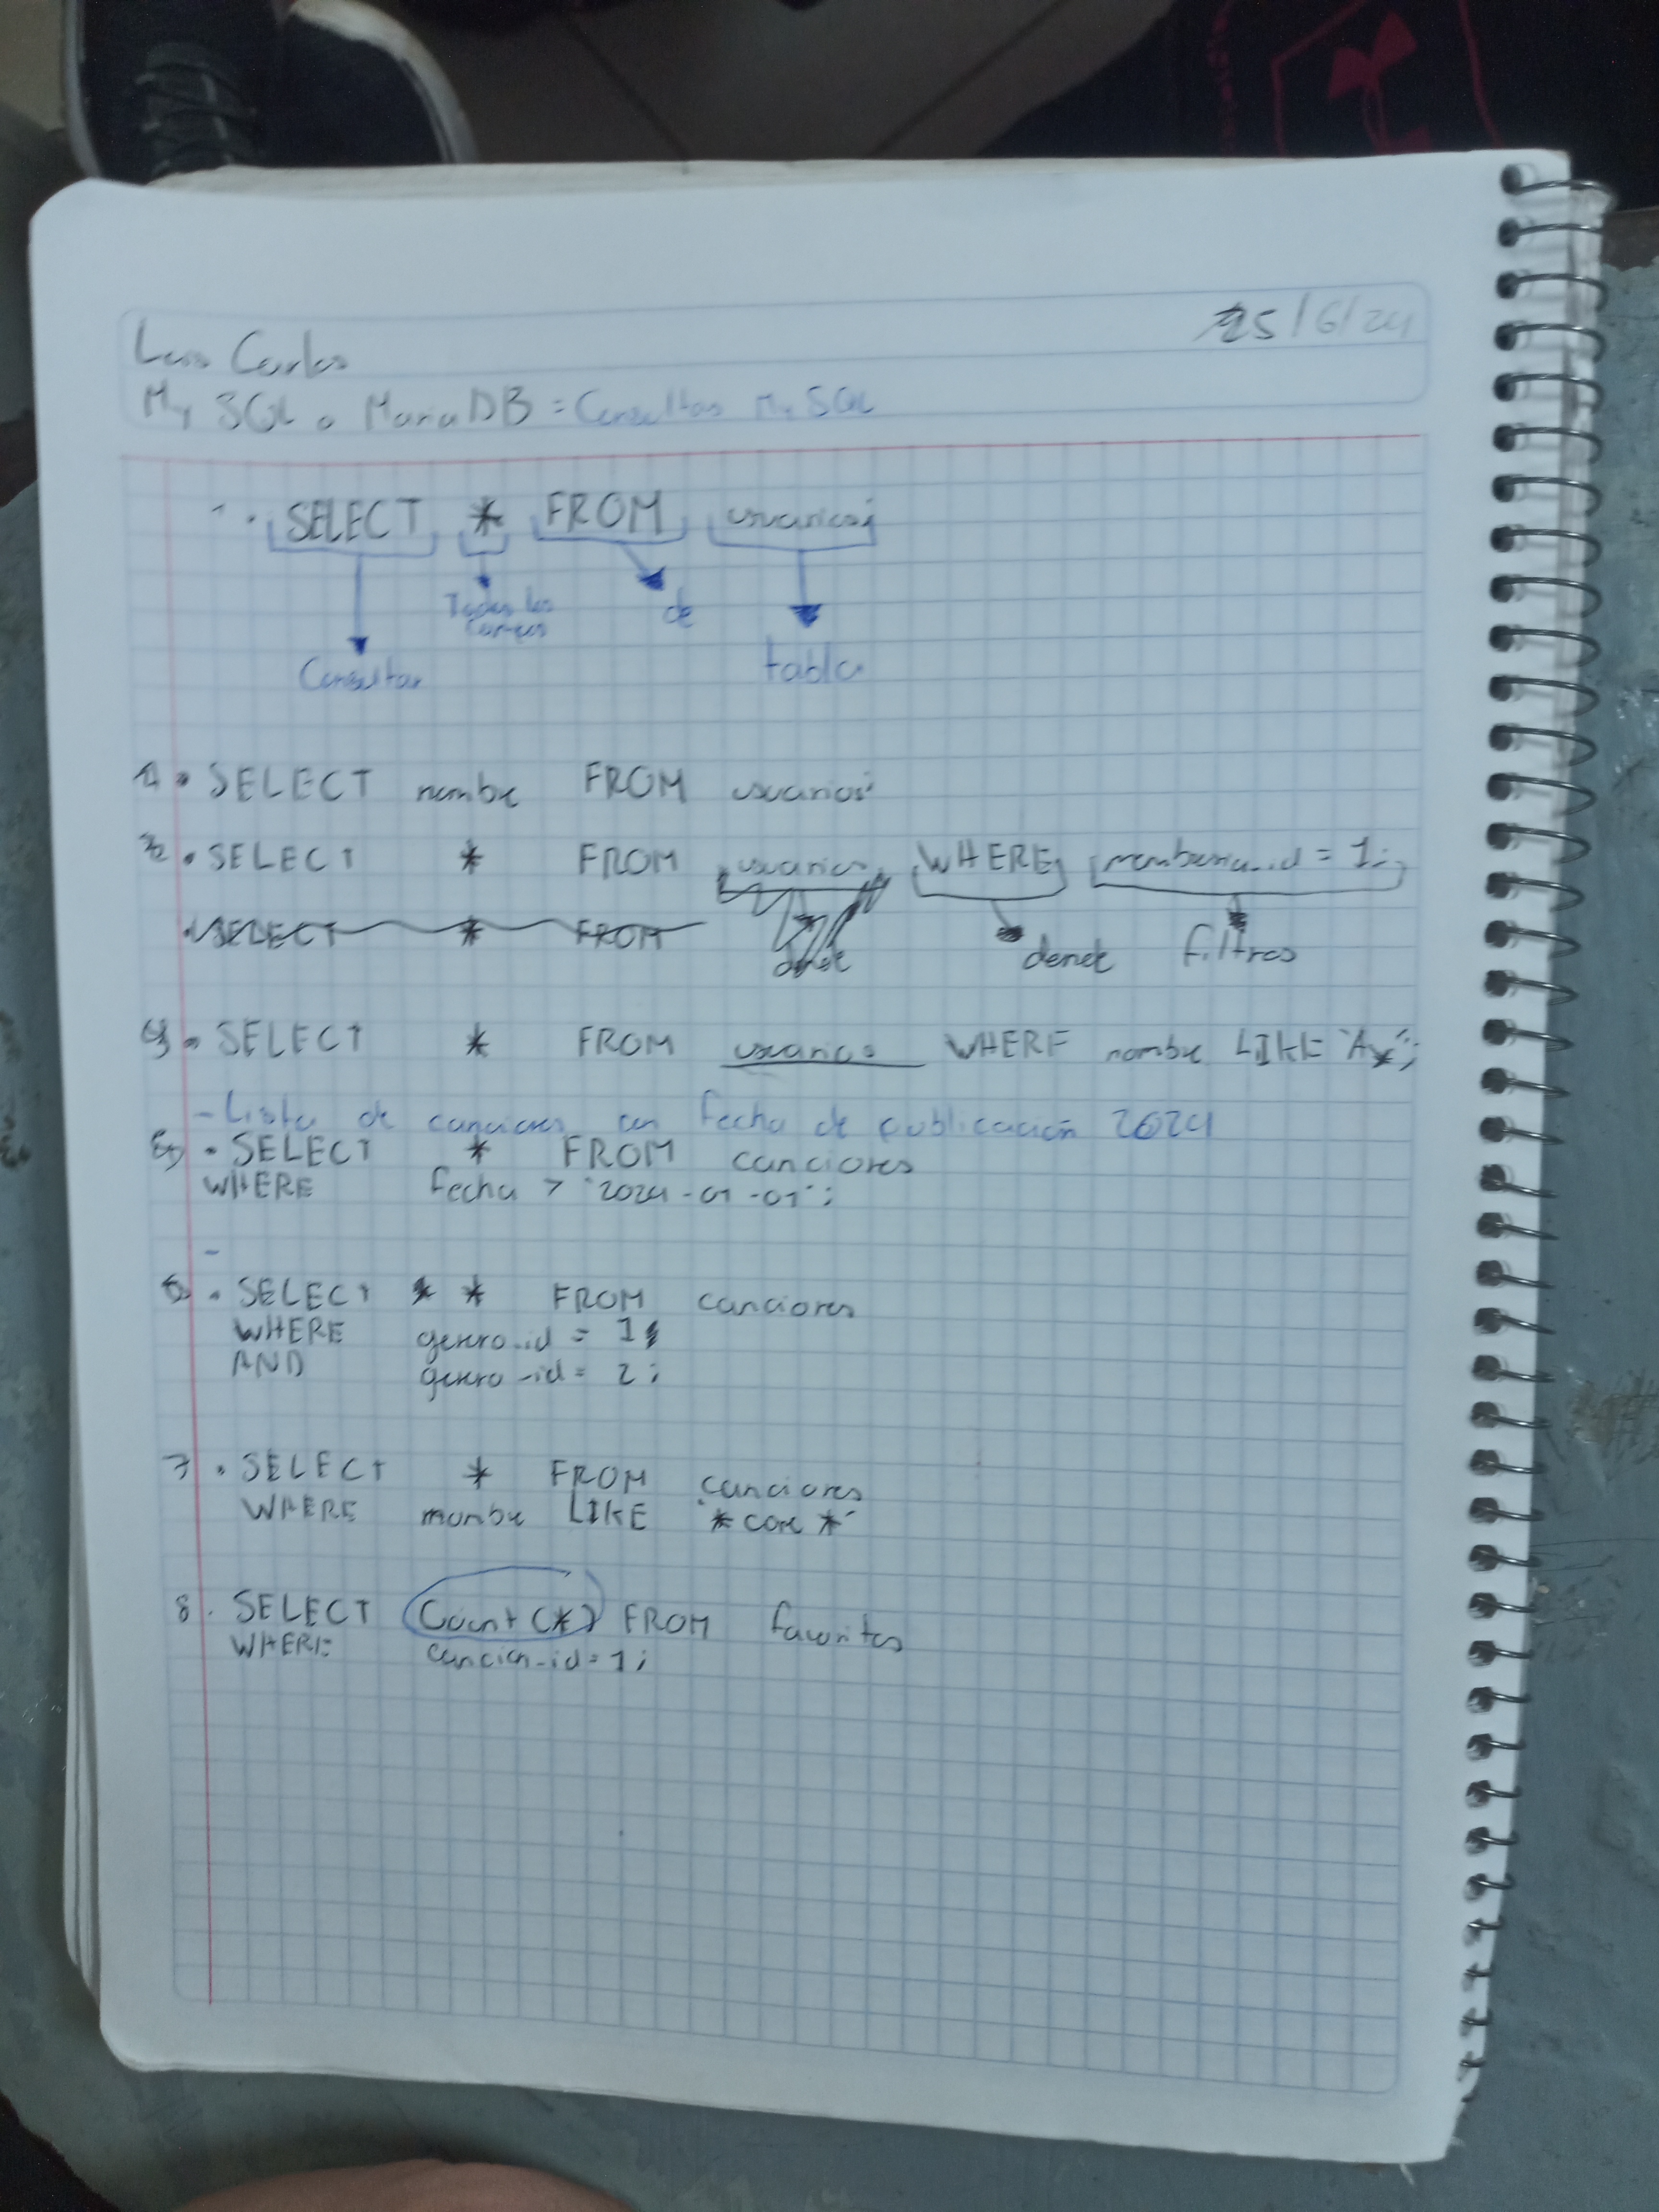 Luis Carlos
25/6/24
My SQL o MariaDB = Consultas MySQL
1. SELECT * FROM usuarios;
Todos los
campos
de
Consultar
tabla
SELECT nombre FROM usuarios
SELECT * FROM usuarios WHERE membresia_id = 1;
SELECT * FROM
donde
donde filtros
SELECT * FROM usuarios WHERE nombre LIKE "A*";
- Lista de canciones con fecha de publicación 2024
SELECT * FROM canciones
WHERE fecha > '2024-01-01';
-
6. SELECT * * FROM canciones
WHERE genero_id = 1
AND genero_id = 2;
7. SELECT * FROM canciones
WHERE nombre LIKE '* *'
8. SELECT Count (*) FROM favoritos
WHERE cancion_id = 1;